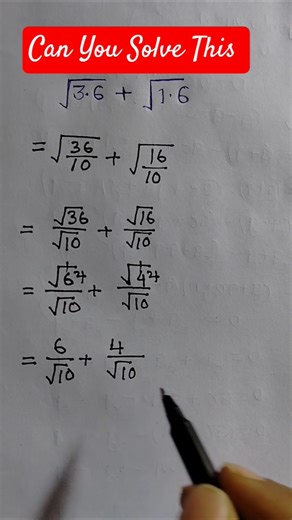 Can You Solve This
√3.6 + √1.6
= √36/10 + √16/10
= √36/√10 + √16/√10
= √6²/√10 + √4²/√10
= 6/√10 + 4/√10